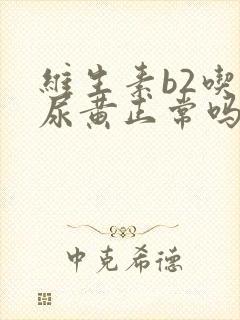 維生素b2喫
尿黄正常吗
中克希德